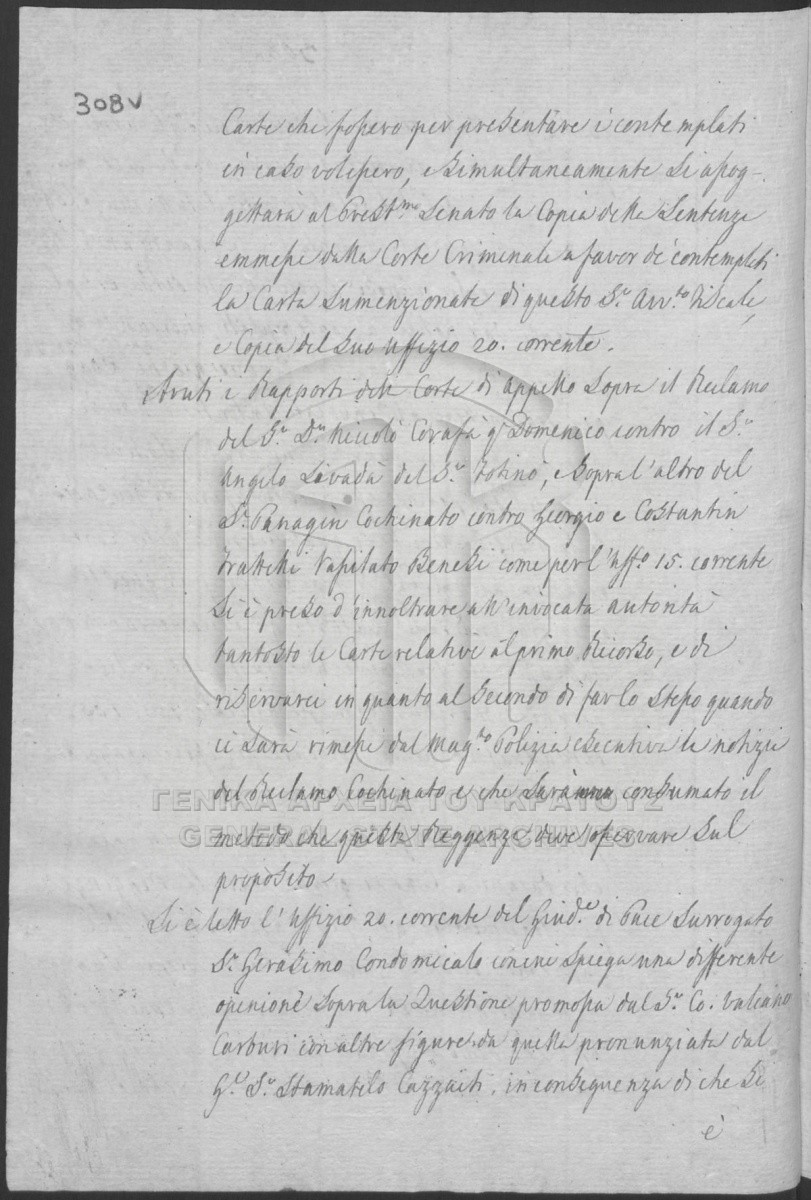 308v
Carte che fossero per presentare i contemplati
in caso volessero, e simultaneamente si assog-
gettarà al Prest.mo Senato la Copia della Sentenza
emmessa dalla Corte Criminale a favor de' contemplati
la Carta sumenzionata di questo S.r Avv.to Fiscale,
e Copia del suo uffizio 20. corrente.
Avuti i Rapporti della Corte di appello sopra il Reclamo
del S.r D.n Niccolò Corafà q.m Domenico contro il S.r
Angelo Livadà del S.r Fotino, e sopra l'altro del
S.r Panagin Cochinato contro Giorgio e Costantin
Frattelli Benesi come per l'uff.o 15. corrente
si è preso d'innoltrare all'invocata autorità
tantosto le Carte relative al primo Ricorso, e di
riservarci in quanto al secondo di farlo stesso quando
ci sarà rimesse dal Mag.to Polizia esecutiva le notizie
del Reclamo Cochinato e che sarà consumato il
metodo che questa Reggenza deve osservare sul
proposito.
Si è letto l'uffizio 20. corrente del Giud.e di Pace surrogato
S.r Gerasimo Condomicalo con cui spiega una differente
openione sopra la Questione promossa dal S.r Co. Valsamo
Carburi con altre figure da quella pronunziata dal
G.e S.r Stamatelo Cazzaiti, in conseguenza di che si
è
ΓΕΝΙΚΑ ΑΡΧΕΙΑ ΤΟΥ ΚΡΑΤΟΥΣ
GENERAL STATE ARCHIVES